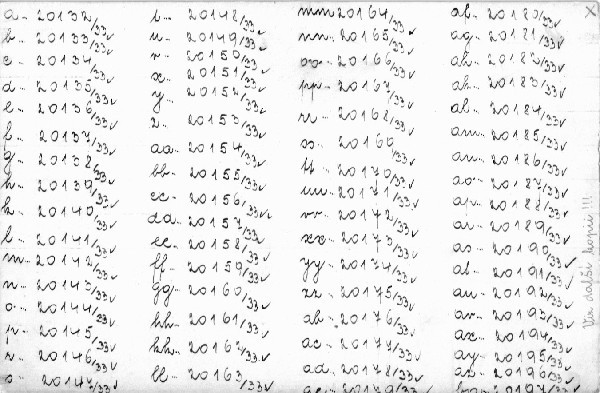 a - 20132/33✓
b - 20133/33✓
c - 20134/33✓
d - 20135/33✓
e - 20136/33✓
f - 20137/33✓
g - 20138/33✓
h - 20139/33✓
k - 20140/33✓
l - 20141/33✓
m - 20142/33✓
n - 20143/33✓
o - 20144/33✓
p - 20145/33✓
r - 20146/33✓
s - 20147/33✓
t - 20148/33✓
u - 20149/33✓
v - 20150/33✓
x - 20151/33✓
y - 20152/33✓
z - 20153/33✓
aa - 20154/33✓
bb - 20155/33✓
cc - 20156/33✓
dd - 20157/33✓
ee - 20158/33✓
ff - 20159/33✓
gg - 20160/33✓
hh - 20161/33✓
kk - 20162/33✓
ll - 20163/33✓
mm 20164/33✓
nn - 20165/33✓
oo - 20166/33✓
pp - 20167/33✓
rr - 20168/33✓
ss - 20169/33✓
tt - 20170/33✓
uu - 20171/33✓
vv - 20172/33✓
xx - 20173/33✓
yy - 20174/33✓
zz - 20175/33✓
ab - 20176/33✓
ac - 20177/33✓
ad - 20178/33✓
ae - 20179/33✓
af - 20180/33✓
ag - 20181/33✓
ah - 20182/33✓
ak - 20183/33✓
al - 20184/33✓
am - 20185/33✓
an - 20186/33✓
ao - 20187/33✓
ap - 20188/33✓
ar - 20189/33✓
as - 20190/33✓
at - 20191/33✓
au - 20192/33✓
av - 20193/33✓
ax - 20194/33✓
ay - 20195/33✓
az - 20196/33✓
20197/33✓
X
Viz další kopii!!!